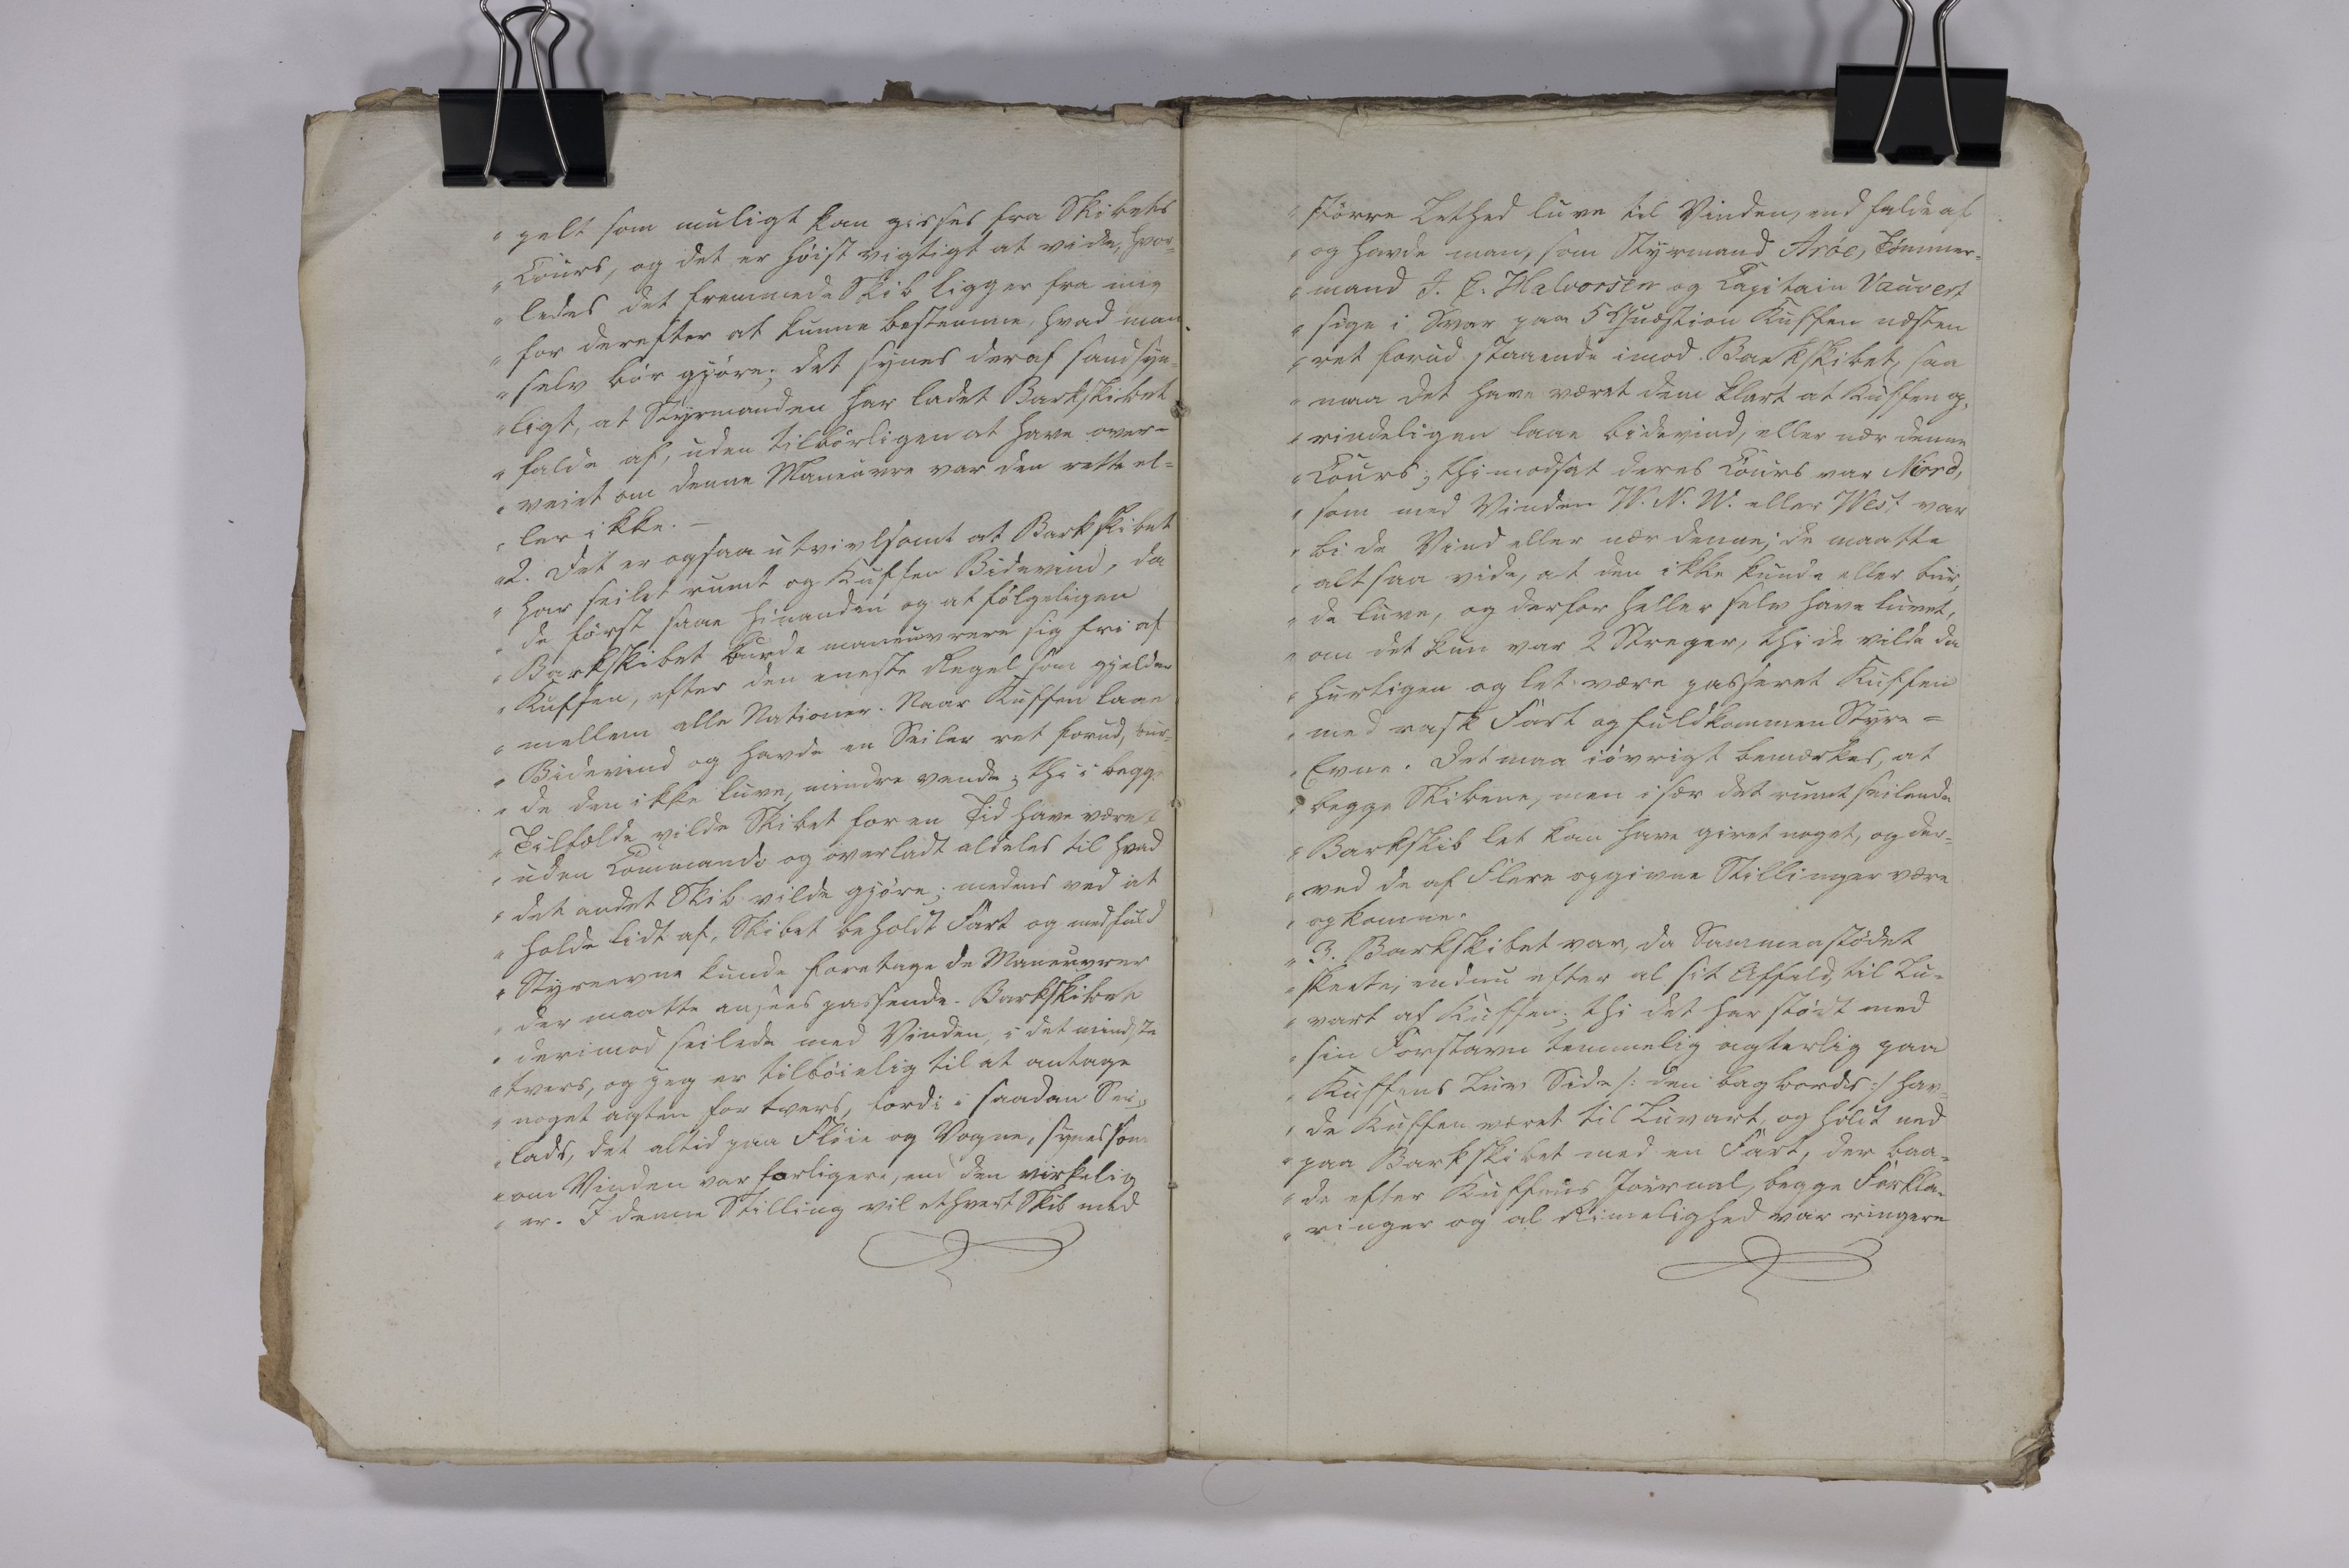 " gelt som muligt kan gisses fra Skibets
" Cours, og det er høist vigtigt at vide, hvor-
" ledes det fremmede Skib ligger fra mig
" for derefter at kunne bestemme, hvad man
" selv bør gjøre; det synes deraf sandsyn-
" ligt, at Styrmanden har ladet Barkskibet
" falde af, uden tilbørligen at have over-
" veiet om denne Maneuvre var den rette el-
" ler ikke. –
" 2. Det er ogsaa utvivlsomt at Barkskibet
" har seilet rumt og Kuffen Bidevind, da
" de først saae hinanden og at følgeligen
" Barkskibet burde maneuvrere sig fri af
" Kuffen, efter den eneste Regel som gjelder
" mellem alle Nationer. Naar Kuffen laae
" Bidevind og havde en Seiler ret forud, bur-
" de den ikke luve, mindre vende; thi i begge
" Tilfælde vilde Skibet for en Tid have været
" uden Commando og overladt aldeles til hvad
" det andet Skib vilde gjøre; medens ved at
" holde lidt af, Skibet beholdt Fart og med fuld
" Styreevne kunde foretage de Maneuvrer
" der maatte ansees passende. Barkskibet
" derimod seilede med Vinden, i det mindste
" tvers, og jeg er tilbøielig til at antage
" noget agten for tvers, fordi i saadan Sei-
" lads, det altid paa Fløie og Vogne, synes som
" om Vinden var forligere, end den virkelig
" er. I denne Stilling vil ethvert Skib med
" større Lethed luve til Vinden, end falde af
" og havde man, som Styrmand Arøe, Tømmer-
" mand J. C. Halvorsen og Capitain Vauvert
" sige i Svar paa 5 Quæstion Kuffen næsten
" ret forud staaende imod Barkskibet, saa
" maa det have været dem klart at Kuffen op-
" rindeligen laae bidevind, eller nær denne
" Cours; thi modsat deres Cours var Nord,
" som med Vinden W. N. W. eller West var
" bi de Vind eller nær denne; de maatte
" altsaa vide, at den ikke kunde eller bur-
" de luve, og derfor heller selv have luvet,
" om det kun var 2 Streger, thi de vilde da
" hurtigen og let være passeret Kuffen
" med rask Fart og fuldkommen Styre-
" Evne. Det maa iøvrigt bemærkes, at
" begge Skibene, men især det rumt seilende
" Barkskib let kan have giret noget, og der-
" ved de af Flere opgivne Stillinger være
" opkomne.
" 3. Barkskibet var, da Sammenstødet
" skeete, endnu efter al sit Affald, til Lu-
" vart af Kuffen; thi det har stødt med
" sin Forstavn temmelig agterlig paa
" Kuffens Luv Side /: den bagbords :/ hav-
" de Kuffen været til Luvart, og holdt ned
" paa Barkskibet med en Fart, der baa-
" de efter Kuffens Journal, begge Forkla-
" ringer og al Rimelighed var ringere